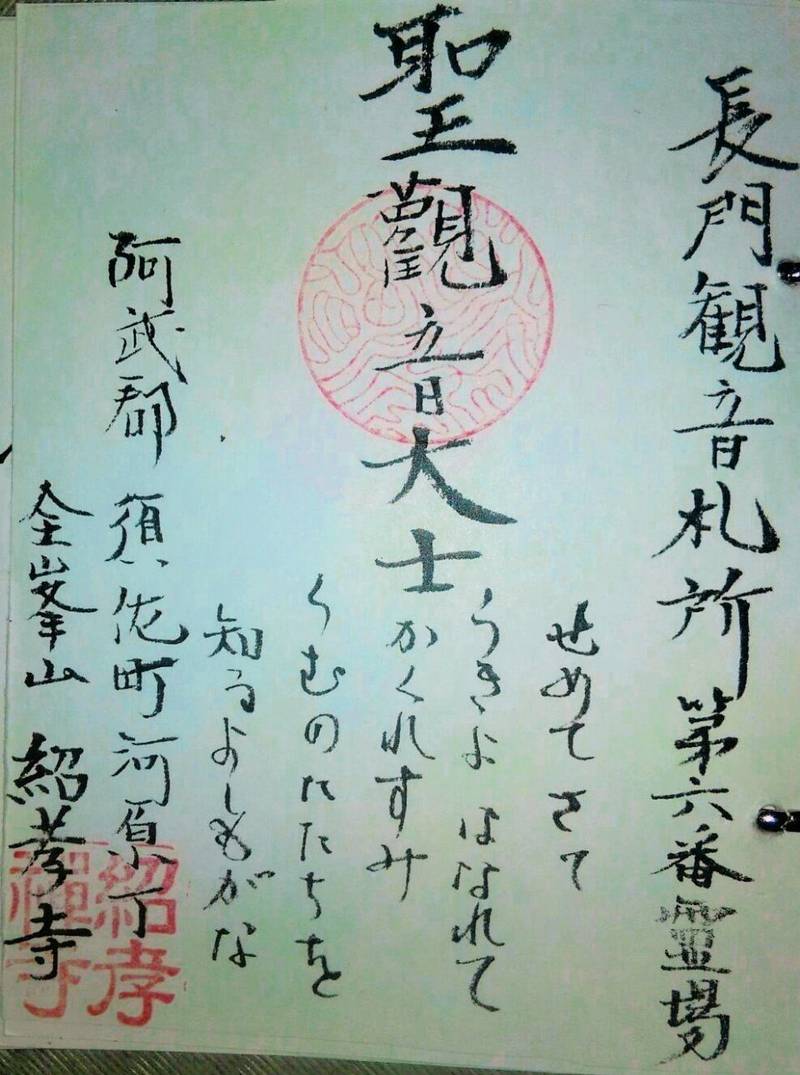 長門観音札所第六番霊場
聖觀音大士
せめてさて
うきよはなれて
かくれすみ
くむのにたちを
知るよしもがな
阿武郡須佐町河原丁
金峯山紹孝寺
紹孝
禅寺